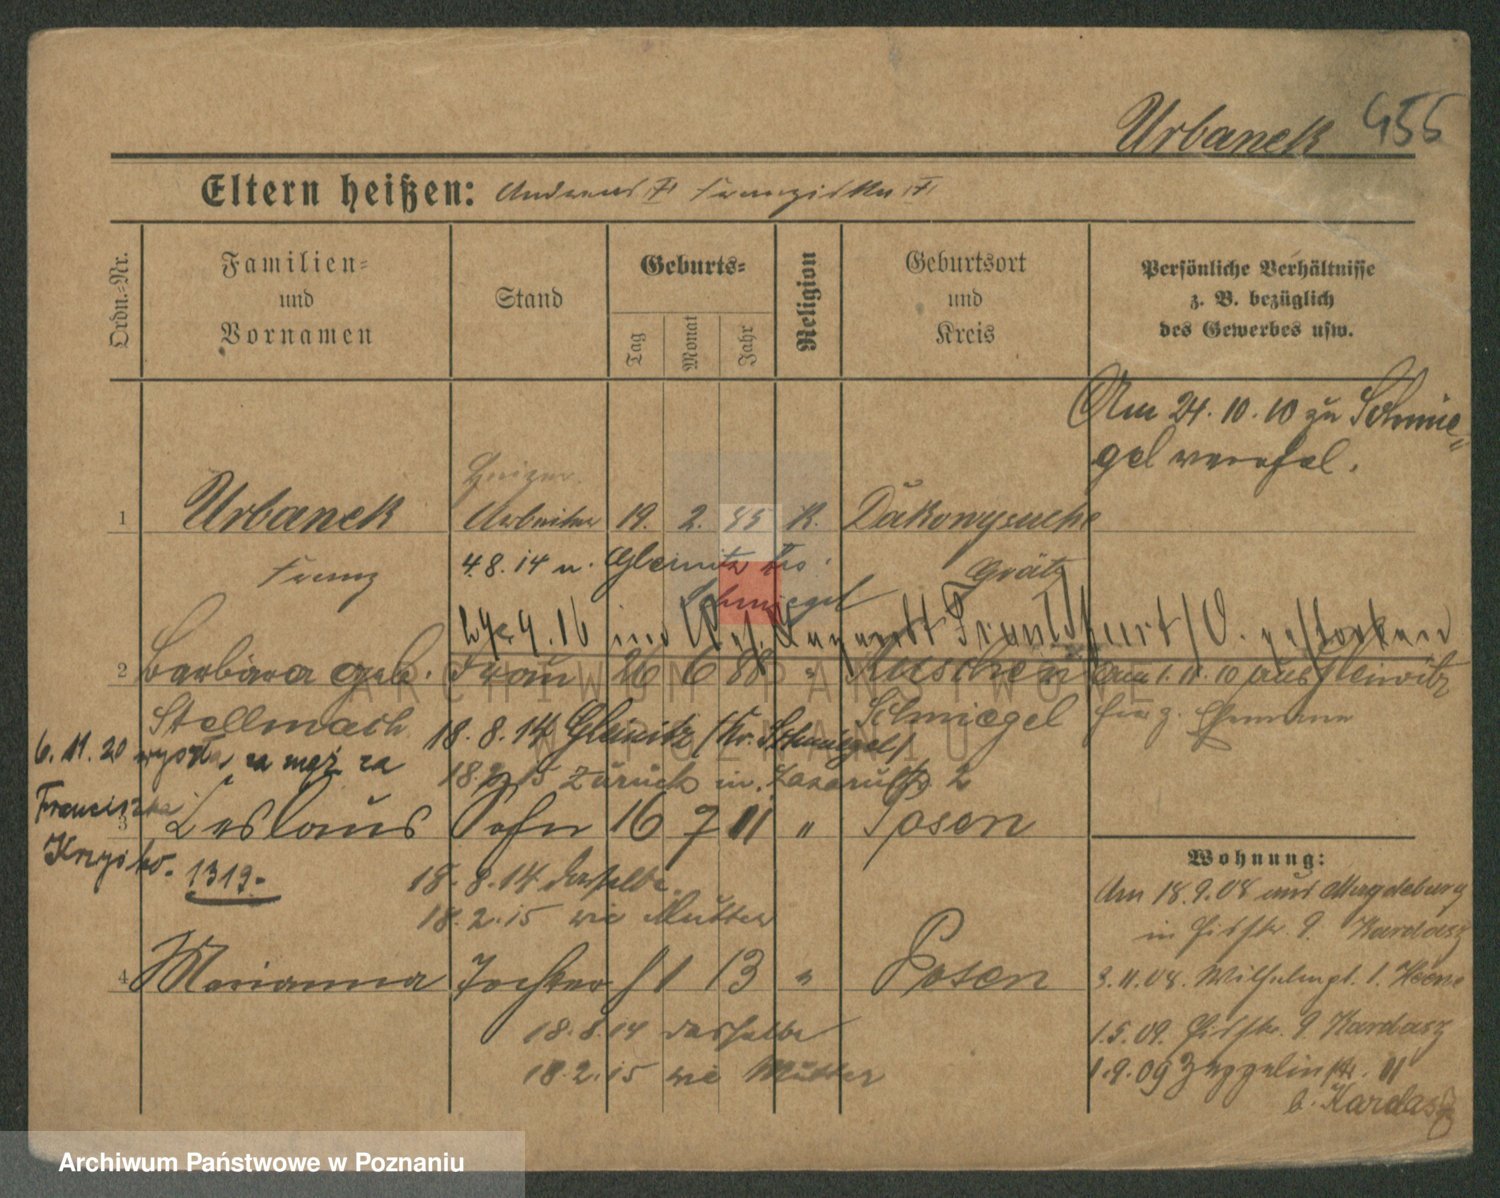 Urbanek 455
Eltern heißen: Andreas Franziska
Ordn.-Nr.
Familien-
und
Vornamen
Stand
Geburts-
Tag
Monat
Jahr
Religion
Geburtsort
und
Kreis
Persönliche Verhältnisse
z. B. bezüglich
des Gewerbes usw.
Am 24.10.10 zu Schmie-
gel verehel.
1 Urbanek Arbeiter 19. 2. 85 K.
Franz 4.8.14 n. Gleinitz Krs. Grätz
Schmiegel
4. 16 Frankfurt/O. gestorben
2 Barbara geb. Frau 26 6 88 " Kuschen Am 1.11.10 aus Gleinitz
Stellmach Schmiegel
18.8.14 Gleinitz (Kr. Schmiegel)
6.11.20 wyszła za mąż za
18.2.15 zurück in
Franciszka
3 Leslaus Sohn 16 7 11 " Posen
Krzysko. 1319.
18.8.14 dasselbe
18.2.15 wie Mutter
4 Marianna Tochter 1 13 " Posen
18.8.14 dasselbe
18.2.15 wie Mutter
Wohnung:
Am 18.9.08 aus Magdeburg
in 9. Kardasz
3.11.08. 1.
1.5.09. 9 Kardasz
1.9.09 Zeppelinstr. 11
b. Kardasz
ARCHIWUM PAŃSTWOWE
W POZNANIU
Archiwum Państwowe w Poznaniu